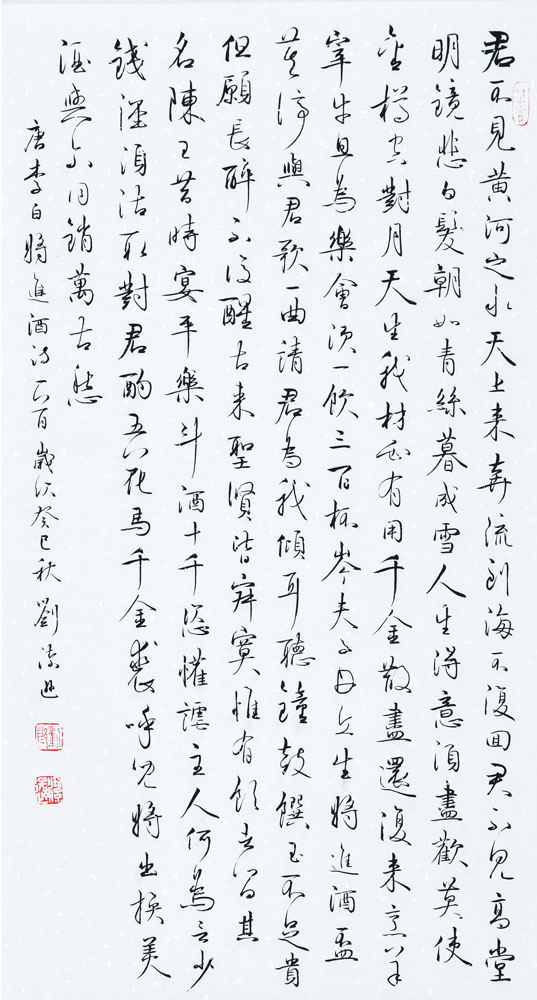 君不見黃河之水天上来奔流到海不復回君不見高堂
明鏡悲白髮朝如青絲暮成雪人生得意須盡歡莫使
金樽空對月天生我材必有用千金散盡還復来烹羊
宰牛且為樂會須一飲三百杯岑夫子丹丘生將進酒盃
莫停與君歌一曲請君為我傾耳聽鐘鼓饌玉不足貴
但願長醉不復醒古来聖賢皆寂寞惟有飲者留其
名陳王昔時宴平樂斗酒十千恣懽謔主人何為言少
錢徑須沽取對君酌五花馬千金裘呼兒將出換美
酒與尔同銷萬古愁
唐李白將進酒詩一首歲次癸巳秋劉